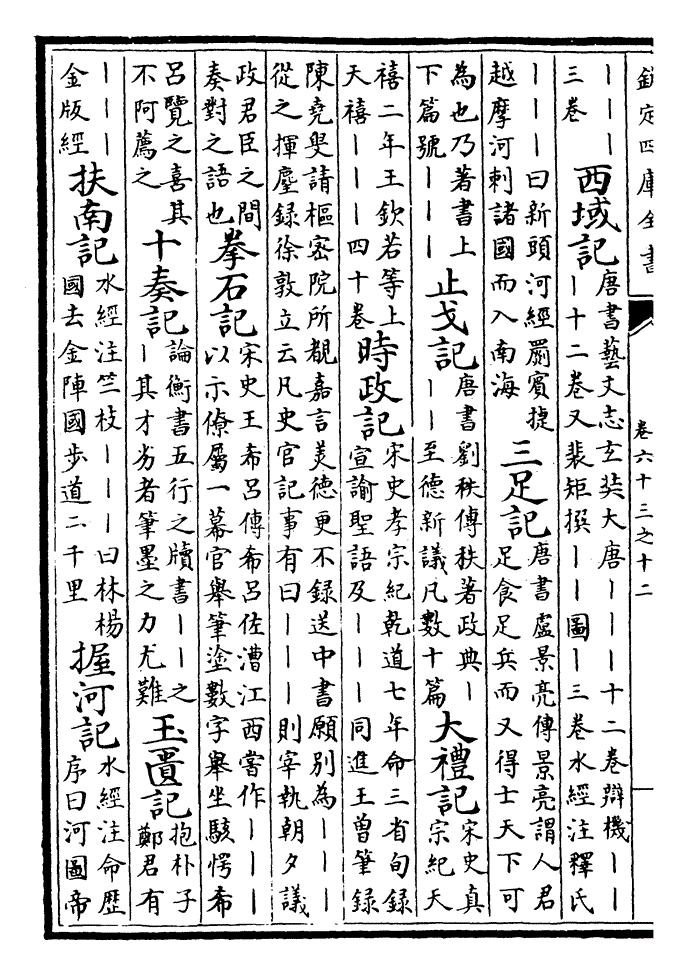 欽定四庫全書
卷六十三之十二
｜｜｜
三卷
西域記
唐書藝文志玄奘大唐｜｜｜十二卷辯機｜｜
｜十二卷又裴矩撰｜｜圖｜三卷水經注釋氏
｜｜｜曰新頭河經罽賓揵
越摩河刺諸國而入南海
三足記
唐書盧景亮傳景亮謂人君
足食足兵而又得士天下可
為也乃著書上
下篇號｜｜｜
止戈記
唐書劉秩傳秩著政典｜
｜｜至德新議凡數十篇
大禮記
宋史真
宗紀天
禧二年王欽若等上
天禧｜｜｜四十卷
時政記
宋史孝宗紀乾道七年命三省旬錄
宣諭聖語及｜｜｜同進王曾筆錄
陳堯叟請樞密院所覩嘉言美德更不錄送中書願別為｜｜｜
從之揮麈録徐敦立云凡史官記事有曰｜｜｜則宰執朝夕議
政君臣之間
奏對之語也
拳石記
宋史王希呂傳希呂佐漕江西當作｜｜｜
以示僚屬一幕官舉筆塗數字舉坐駭愕希
呂覽之喜其
不阿薦之
十奏記
論衡書五行之牘書｜｜之
｜其才劣者筆墨之力尤難
玉匱記
抱朴子
鄭君有
｜｜｜
金版經
扶南記
水經注竺枝｜｜｜曰林楊
國去金陣國步道二千里
握河記
水經注命歷
序曰河圖帝